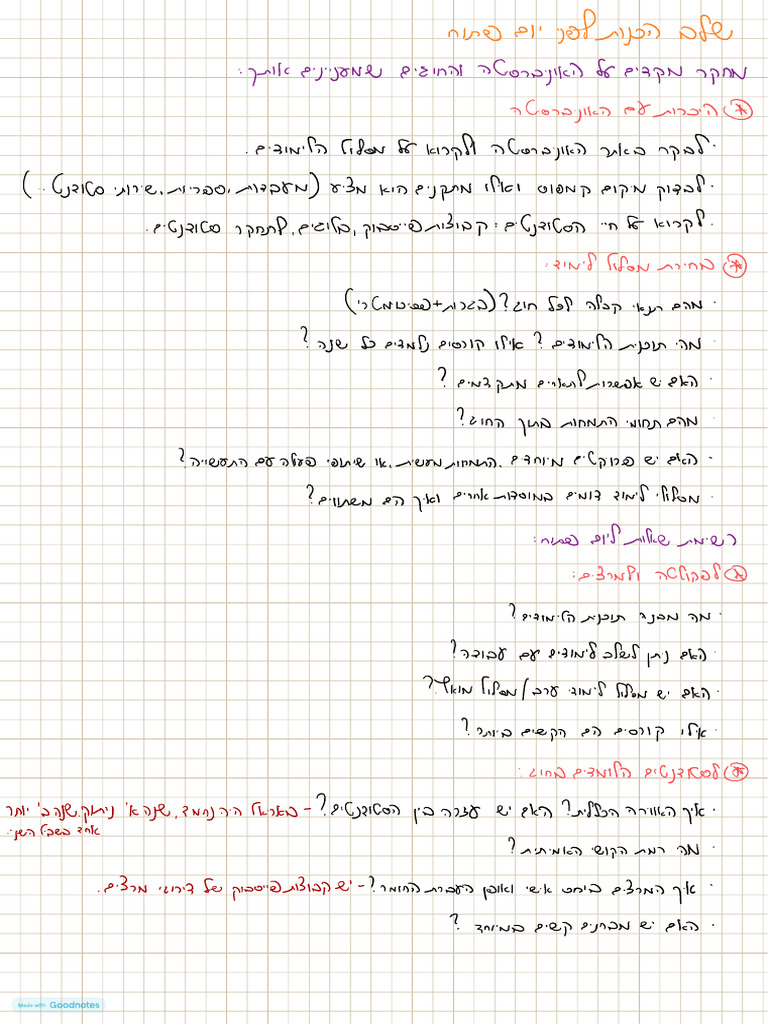 שלב הכנות לפני יום פתוח
מחקר מקדים על האוניברסיטה והחוגים שמעניינים אותך:
* היכרות עם האוניברסיטה
· לבקר באתר האוניברסיטה ולקרוא על מסלול הלימודים.
· לבדוק מיקום קמפוס ואילו מתקנים היא מציע (מעבדות, ספריות, שירותי סטודנט..)
· לקרוא על חיי הסטודנטים: קבוצות פייסבוק, בלוגים, לתחקר סטודנטים.
* בחירת מסלול לימוד:
· מהם תנאי קבלה לכל חוג? (בגרות+פסיכומטרי)
· מהי תוכנית הלימודים? אילו קורסים נלמדים כל שנה?
· האם יש אפשרות לתארים מתקדמים?
· מהם תחומי התמחות בתוך החוג?
· האם יש פרוקטים מיוחדים, התמחות מעשית, או שיתופי פעולה עם התעשייה?
· מסלולי לימוד דומים במוסדות אחרים ואיך הם משתווים?
רשימת שאלות ליום פתוח:
* לפקולטה ולמרצים:
· מה מבנה תוכנית הלימודים?
· האם ניתן לשלב לימודים עם עבודה?
· האם יש מסלול לימודי ערב/מסלול מואץ?
· אילו קורסים הם הקשים ביותר?
* לסטודנטים הלומדים בחוג:
· איך האווירה הכללית? האם יש עזרה בין הסטודנטים? - באראל היה נחמד, שנה א' ניתוק, שנה ב' יותר
אחד בשביל השני.
· מה רמת הקושי האמיתית?
· איך המרצים ביחס אישי ואופן העברת החומר? - יש קבוצות פייסבוק של דירוגי מרצים.
· האם יש מבחנים קשים במיוחד?
Made with Goodnotes